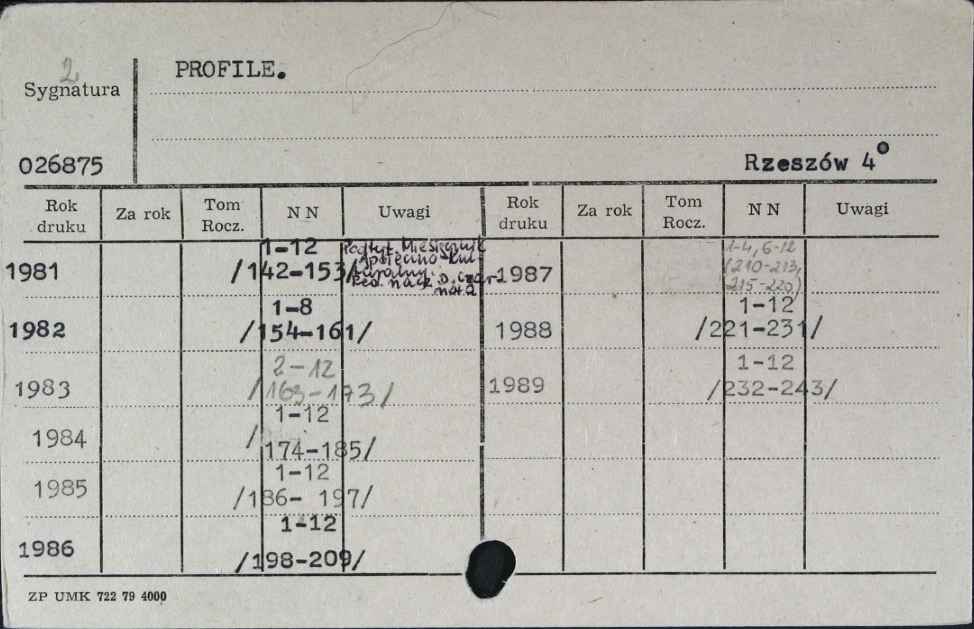 2
PROFILE.
Sygnatura
026875
Rzeszów 4°
Rok druku Za rok Tom Rocz. NN Uwagi Rok druku Za rok Tom Rocz. NN Uwagi
1981 1-12 /142-153/ Podtyt. Miesięcznik społeczno-kulturalny. Red. nacz. D. 1987 1-4, 6-12 /210-213, 215-220/
1982 1-8 /154-161/ 1988 1-12 /221-231/
1983 2-12 /163-173/ 1989 1-12 /232-243/
1984 1-12 /174-185/
1985 1-12 /186- 197/
1986 1-12 /198-209/
ZP UMK 722 79 4000